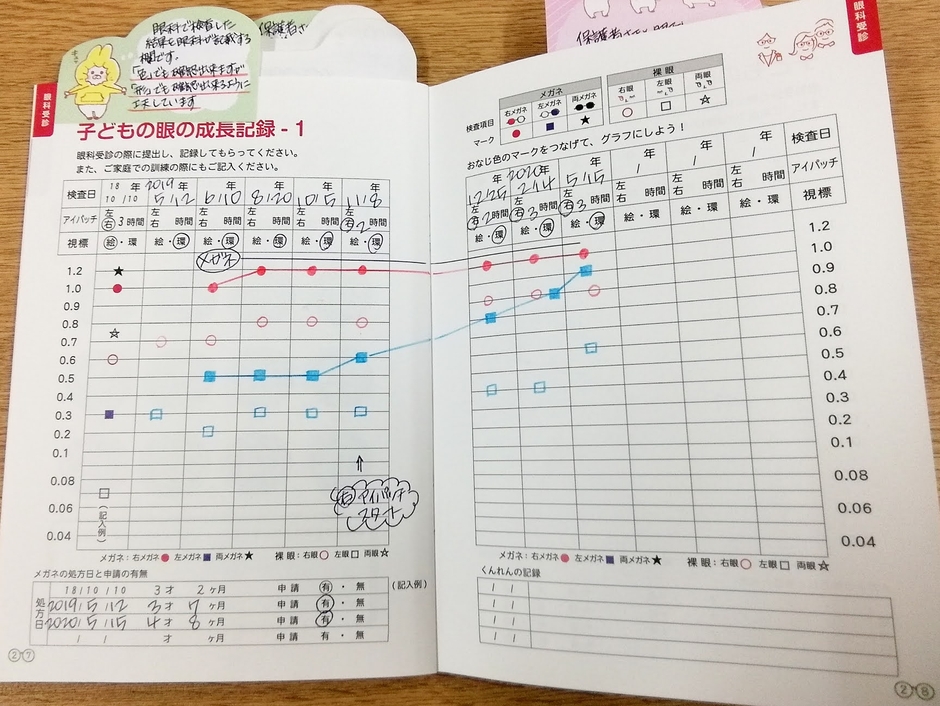 眼科で検査した
結果を眼科が記載する
欄です。
「色」でも確認出来ますが
「形」でも確認が出来るように
工夫しています
保護者さ
眼科受診
子どもの眼の成長記録 - 1
眼科受診の際に提出し、記録してもらってください。
また、ご家庭での訓練の際にもご記入ください。
検査日 18年10/10 2019年5/12 年6/10 年8/20 年10/5 年11/8
アイパッチ 左右 3時間 左右 時間 左右 時間 左右 時間 左右 時間 左右 2時間
視標 絵・環 絵・環 絵・環 絵・環 絵・環 絵・環
メガネ
1.2
1.0
0.8
0.7
0.6
0.5
0.4
0.3
0.2
0.1
0.08
0.06
0.04
(記入例)
右 アイパッチ
スタート
メガネ：右メガネ● 左メガネ■ 両メガネ★ 裸眼：右眼○ 左眼□ 両眼☆
メガネの処方日と申請の有無
処方日
18/10/10 3才 2ヶ月 申請 有・無 (記入例)
2019/5/12 3才 7ヶ月 申請 有・無
2020/5/15 4才 8ヶ月 申請 有・無
/ / 才 ヶ月 申請 有・無
27
眼科受診
検査項目
マーク
メガネ
右メガネ 左メガネ 両メガネ
● ■ ★
裸眼
右眼 左眼 両眼
○ □ ☆
おなじ色のマークをつなげて、グラフにしよう！
年12/25 2020年2/14 年5/15 年/ 年/ 年/ 検査日
左右 2時間 左右 3時間 左右 3時間 左右 時間 左右 時間 左右 時間 アイパッチ
絵・環 絵・環 絵・環 絵・環 絵・環 絵・環 視標
1.2
1.0
0.9
0.8
0.7
0.6
0.5
0.4
0.3
0.2
0.1
0.08
0.06
0.04
メガネ：右メガネ● 左メガネ■ 両メガネ★ 裸眼：右眼○ 左眼□ 両眼☆
くんれんの記録
/ /
/ /
/ /
/ /
28